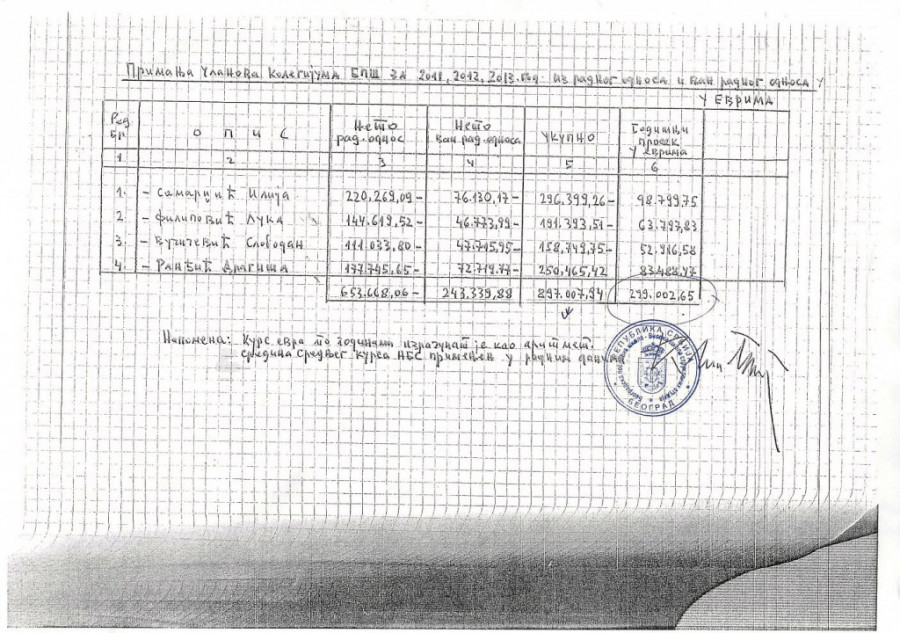 Примања чланова Колегијума БПШ за 2011, 2012, 2013. год. из радног односа и ван радног односа у
у ЕВРИМА
Ред. бр. О П И С Нето рад. однос Нето ван рад. односа УКУПНО Годишњи просек у еврима
1. 2 3 4 5 6
1. - Самарџић Илија 220,269,09- 76.130,17- 296.399,26- 98.799,75
2 - Филиповић Лука 144.619,52- 46.773,99- 191.393,51- 63.797,83
3. - Вучичевић Слободан 111.033,80- 47.715,95- 158.749,75- 52.916,58
4. - Ранђић Драгиша 177.745,65- 72.719,77- 250,465,42 83.488,47
653.668,06- 243.339,88 897.007,94 299.002,65
Напомена: Курс евра по годинама израчунат је као аритмет.
средина средњег курса НБС примењен у радним данима
РЕПУБЛИКА СРБИЈА
БЕОГРАД